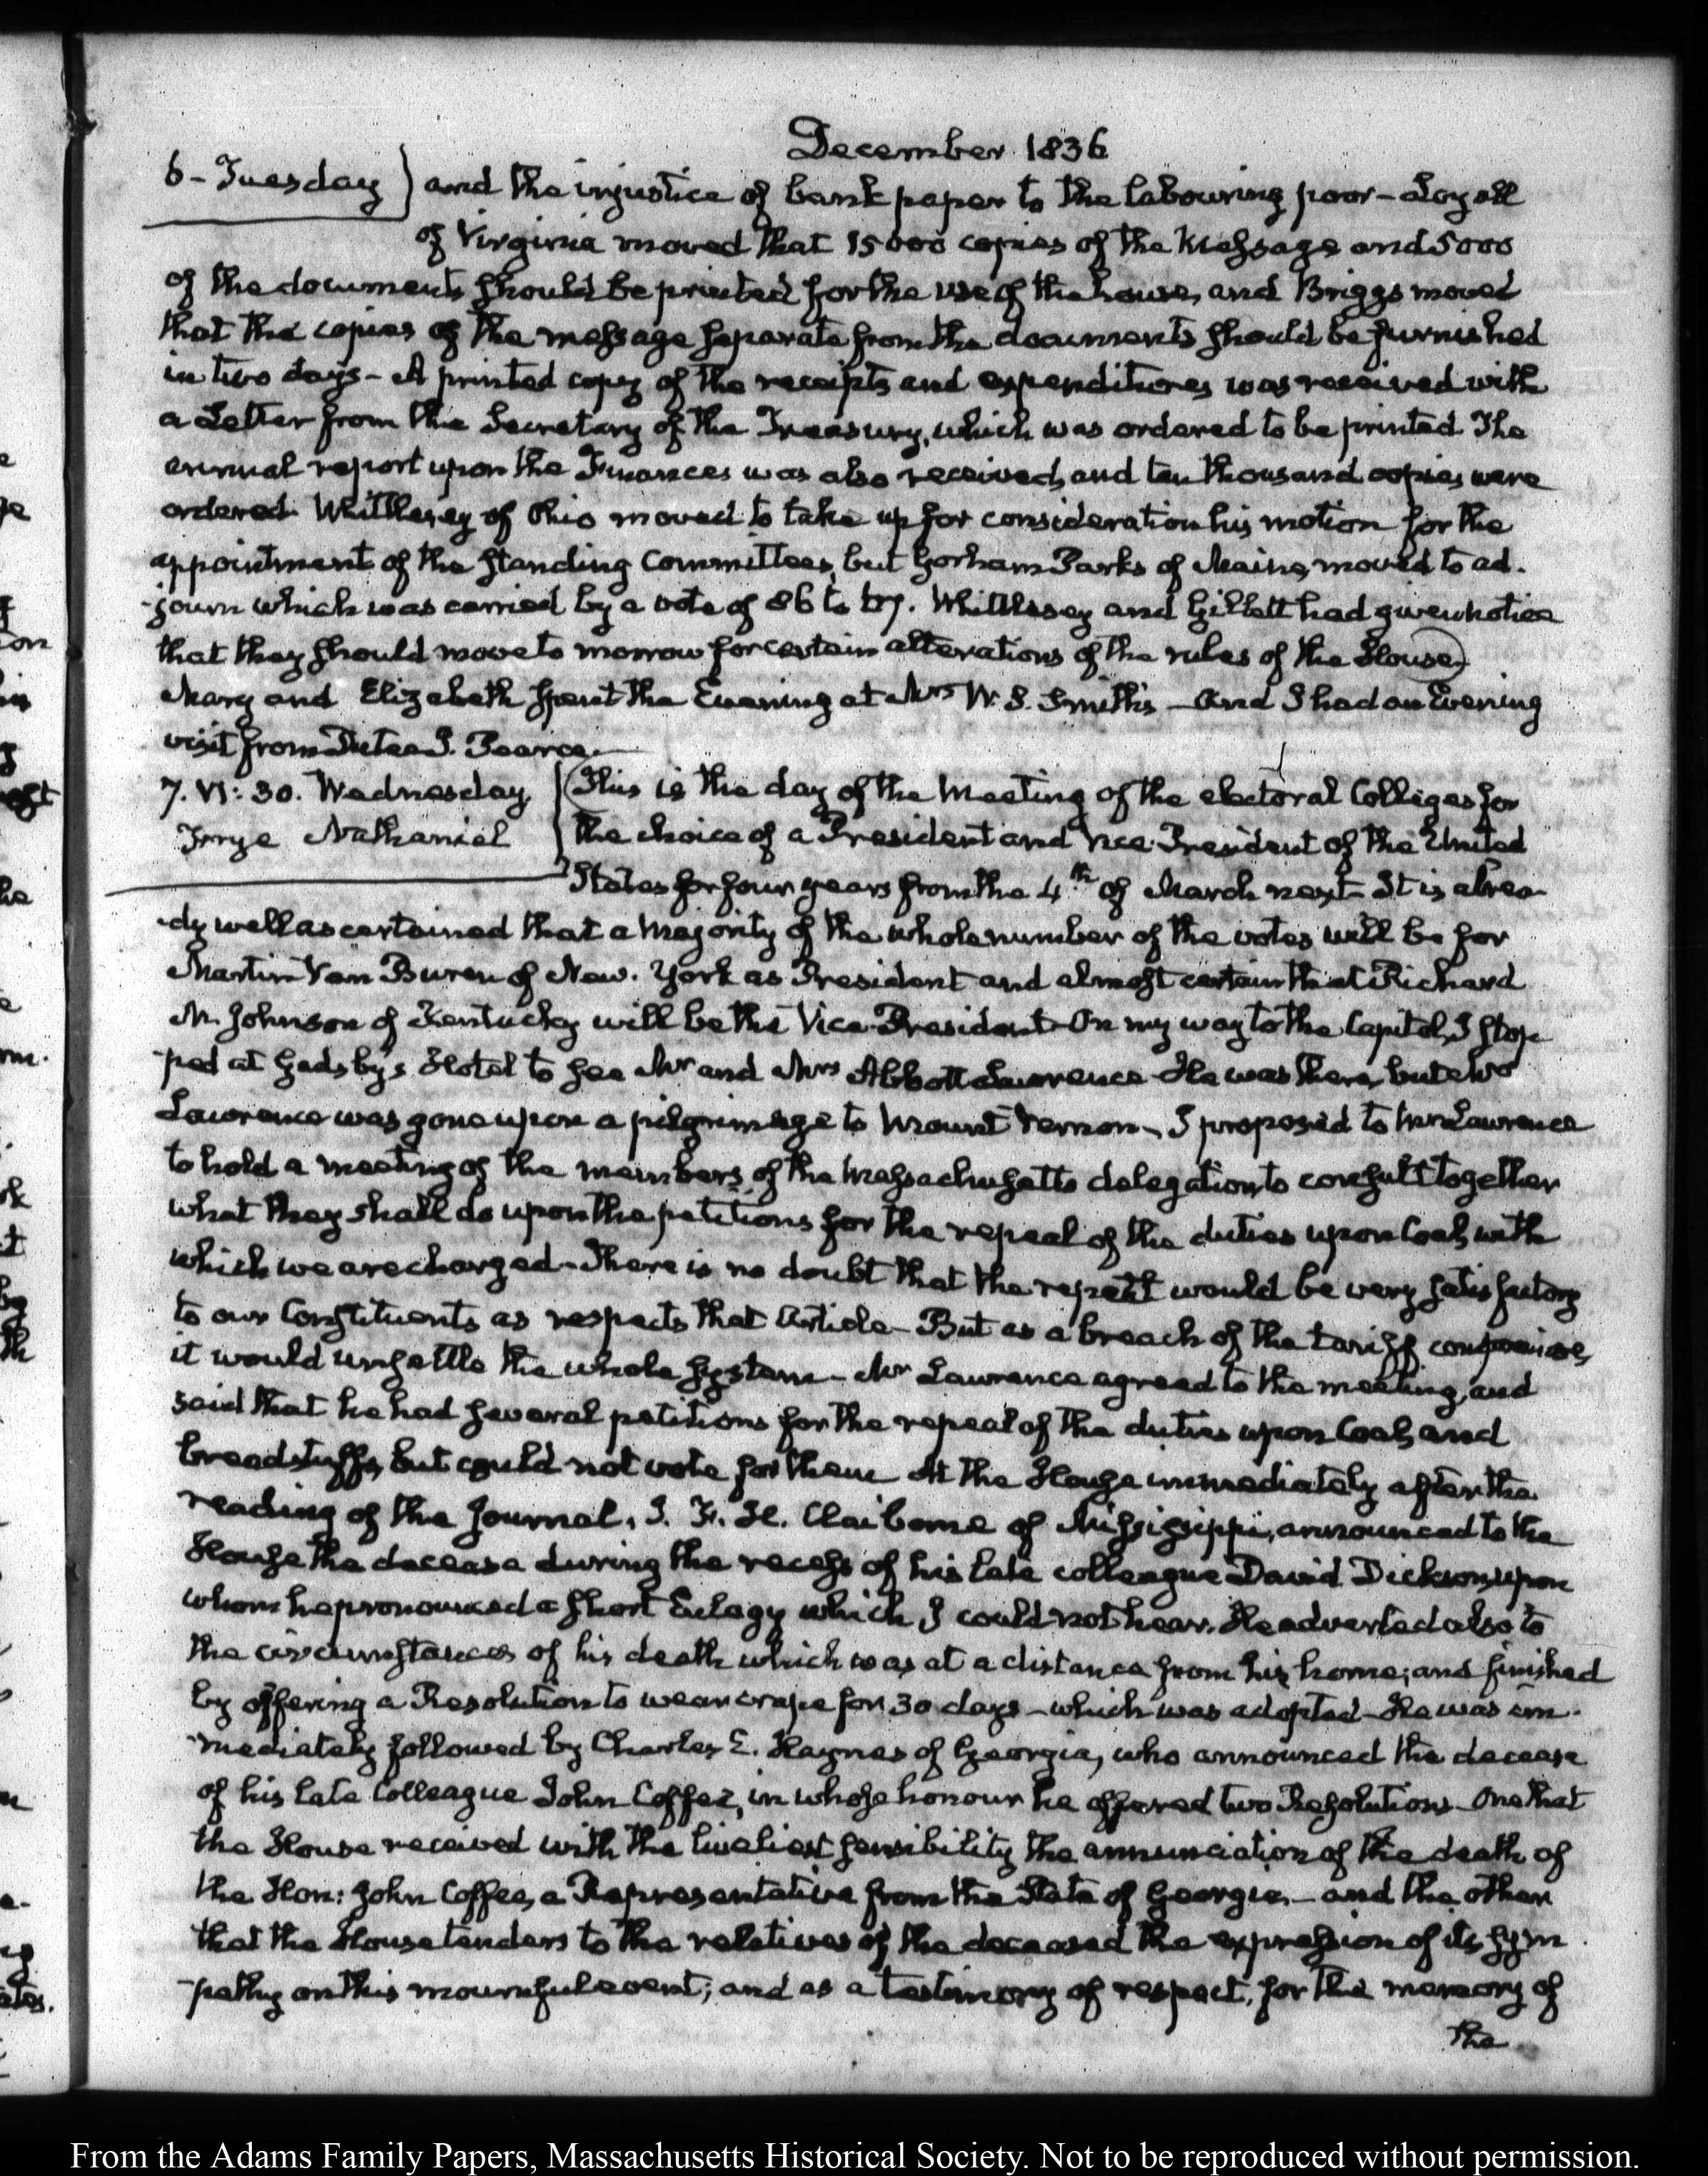 December 1836
6 - Tuesday) and the injustice of bank paper to the labouring poor - Loyall
of Virginia moved that 15000 copies of the Message and 5000
of the documents should be printed for the use of the house, and Briggs moved
that the copies of the message separate from the documents should be furnished
in two days - A printed copy of the receipts and expenditures was received with
a Letter from the Secretary of the Treasury, which was ordered to be printed The
annual report upon the Finances was also received, and ten thousand copies were
ordered. Whittlesey of Ohio moved to take up for consideration his motion for the
appointment of the standing Committees, but Gorham Parks of Maine, moved to ad-
-journ which was carried by a vote of 86 to Whittlesey and Gillett had given notice
that they should move to morrow for certain alterations of the rules of the House)
Mary and Elizabeth spent the Evening at Mrs W. S. Smith's - and I had an Evening
visit from Dutee J. Pearce.
7. VI: 30. Wednesday (This is the day of the Meeting of the electoral Colleges for
Frye Nathaniel the choice of a President and Vice-President of the United
States for four years from the 4th of March next - It is alrea-
-dy well ascertained that a Majority of the whole number of the votes will be for
Martin Van Buren of New-York as President and almost certain that Richard
M. Johnson of Kentucky will be the Vice-President - On my way to the Capitol, I stop-
-ped at Gadsby's Hotel to see Mr and Mrs Abbott Lawrence - He was there, but Mrs
Lawrence was gone upon a pilgrimage to Mount Vernon - I proposed to Mr Lawrence
to hold a meeting of the members of the Massachusetts delegation, to consult together
what they shall do upon the petitions for the repeal of the duties upon Coal, with
which we are charged - There is no doubt that the repeal would be very satisfactory
to our Constituents as respects that article - But as a breach of the tariff compromise,
it would unsettle the whole system - Mr Lawrence agreed to the meeting, and
said that he had several petitions for the repeal of the duties upon Coal, and
breadstuffs, but could not vote for them At the House immediately after the
reading of the Journal, J. F. H. Claiborne of Mississippi, announced to the
House the decease during the recess of his late colleague David Dickson, upon
whom he pronounced a short Eulogy which, I could not hear. He adverted also to
the circumstances of his death which was at a distance from his home; and finished
by offering a Resolution to wear crape for 30 days - which was adopted - He was im-
-mediately followed by Charles E. Haynes of Georgia, who announced the decease
of his late Colleague John Coffee, in whose honour he offered two Resolutions - One that
the House received with the liveliest sensibility the annunciation of the death of
the Hon: John Coffee, a Representative from the State of Georgia - and the other
that the House tenders to the relatives of the deceased the expression of its sym-
-pathy on this mournful event; and as a testimony of respect, for the memory of
the
From the Adams Family Papers, Massachusetts Historical Society. Not to be reproduced without permission.